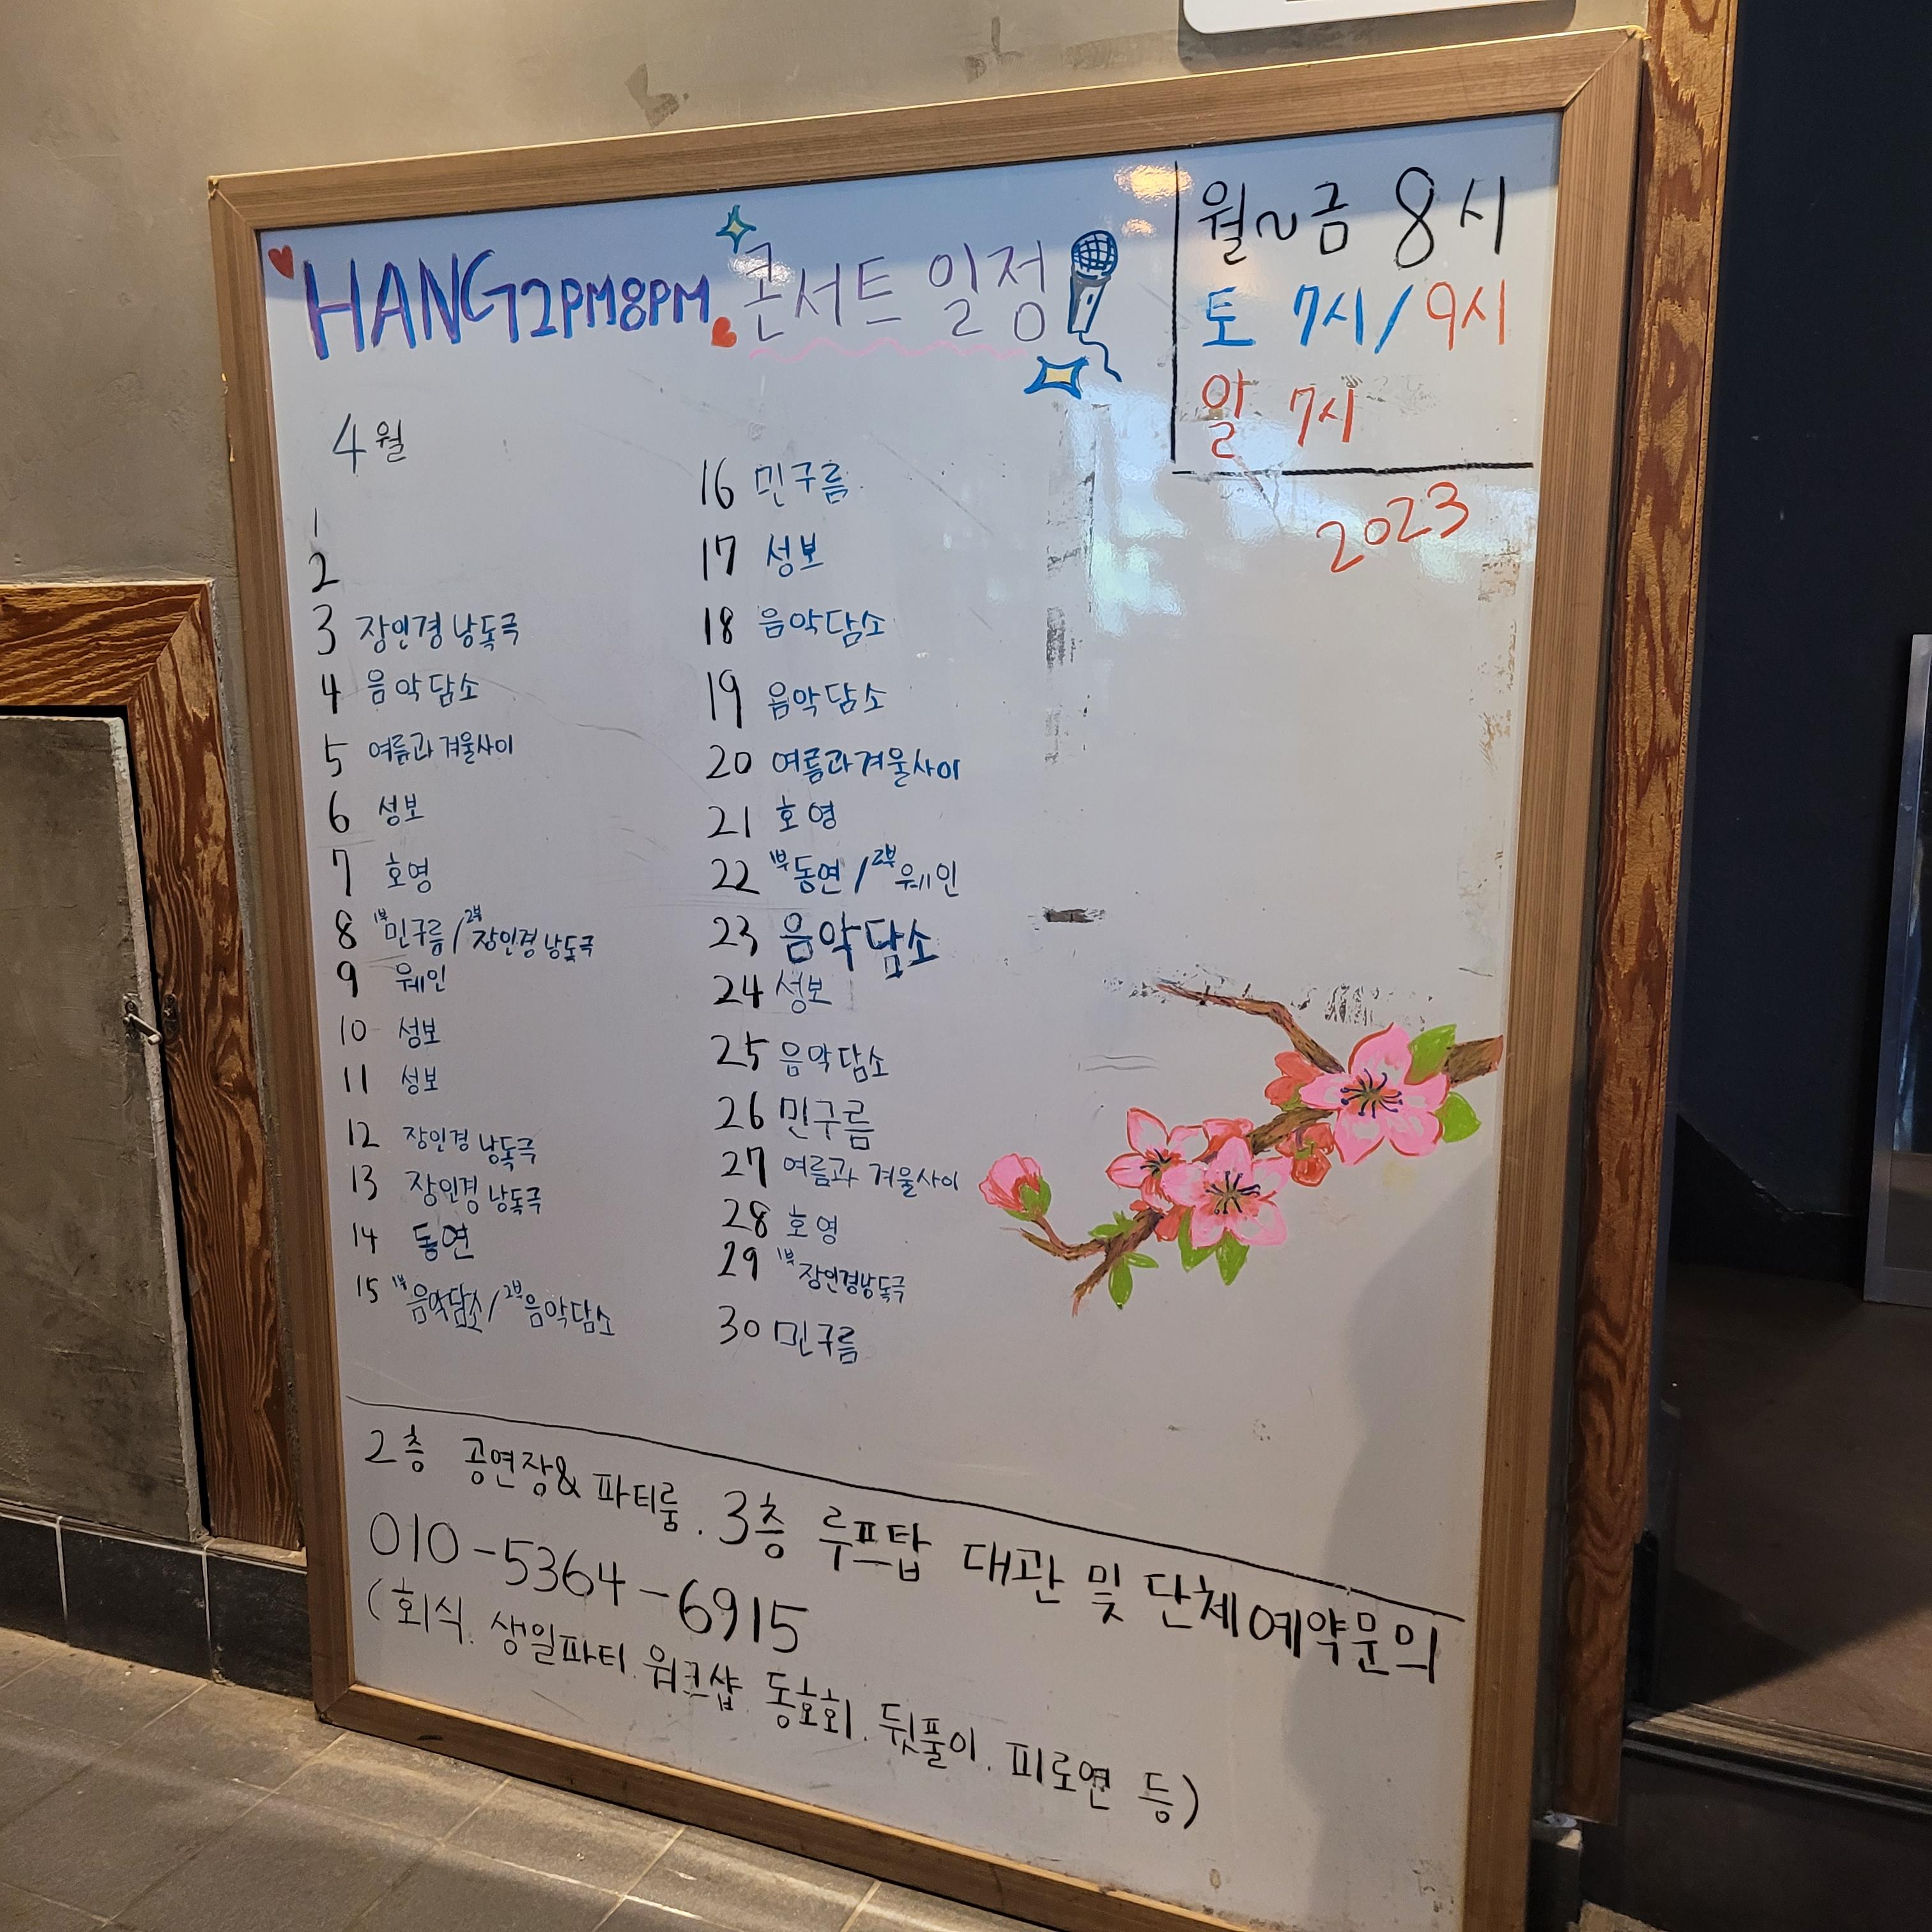 HANG2PM8PM 콘서트 일정
월~금 8시
토 7시/9시
일 7시
2023
4월
1
2
3 장인경 낭독극
4 음악담소
5 여름과 겨울사이
6 성보
7 호영
8 1부 민구름 / 2부 장인경 낭독극
9 웨인
10 성보
11 성보
12 장인경 낭독극
13 장인경 낭독극
14 동연
15 1부 음악담소 / 2부 음악담소
16 민구름
17 성보
18 음악담소
19 음악담소
20 여름과겨울사이
21 호영
22 1부 동연 / 2부 웨인
23 음악담소
24 성보
25 음악담소
26 민구름
27 여름과 겨울사이
28 호영
29 1부 장인경낭독극
30 민구름
2층 공연장& 파티룸. 3층 루프탑 대관 및 단체예약문의
010-5364-6915
(회식. 생일파티. 워크샵. 동호회. 뒷풀이. 피로연 등)